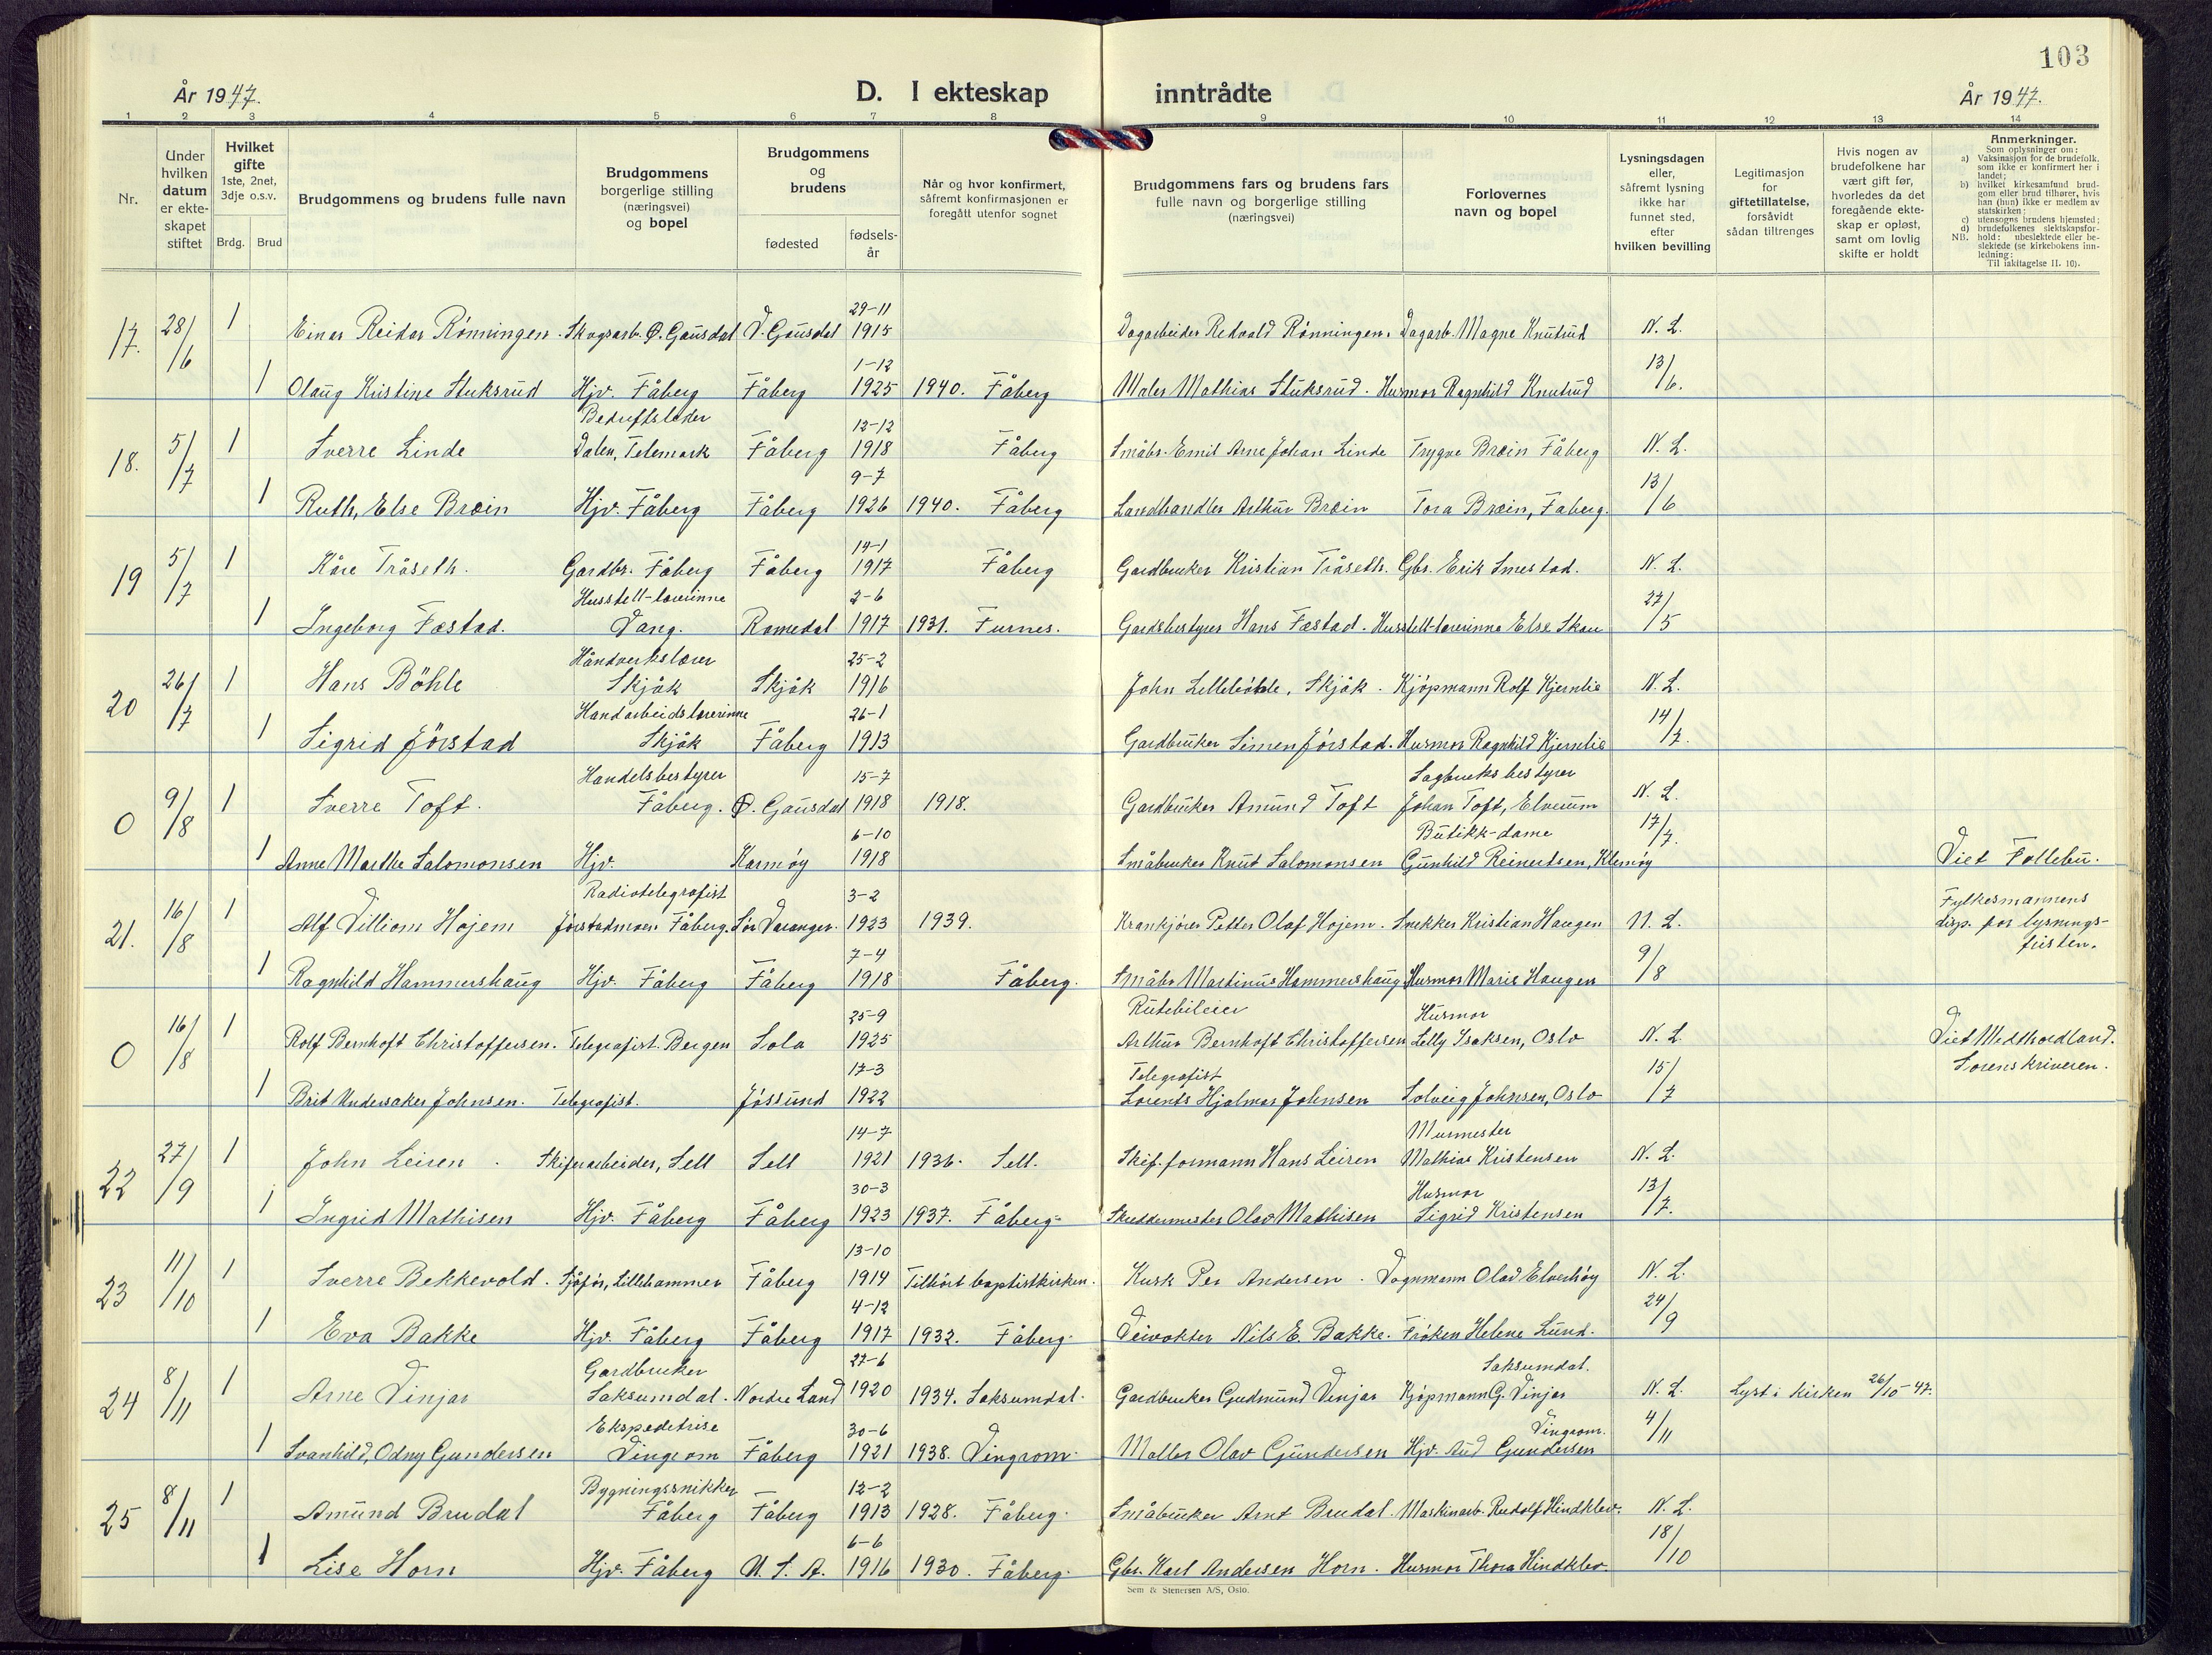 103
År 1947.
D. I ekteskap inntrådte
År 1947.
1 2 3 4 5 6 7 8 9 10 11 12 13 14
Nr.
Under hvilken datum er ekte-skapet stiftet
Hvilket gifte 1ste, 2net, 3dje o.s.v.
Brdg. Brud
Brudgommens og brudens fulle navn
Brudgommens borgerlige stilling (næringsvei) og bopel
Brudgommens og brudens
fødested
fødsels-år
Når og hvor konfirmert, såfremt konfirmasjonen er foregått utenfor sognet
Brudgommens fars og brudens fars fulle navn og borgerlige stilling (næringsvei)
Forlovernes navn og bopel
Lysningsdagen eller, såfremt lysning ikke har funnet sted, efter hvilken bevilling
Legitimasjon for giftetillatelse, forsåvidt sådan tiltrenges
Hvis nogen av brudefolkene har vært gift før, hvorledes da det foregående ekte-skap er opløst, samt om lovlig skifte er holdt
Anmerkninger.
Som oplysninger om:
a) Vaksinasjon for de brudefolk, som ikke er konfirmert her i landet;
b) hvilket kirkesamfund brud-gom eller brud tilhører, hvis han (hun) ikke er medlem av statskirken;
c) utensogns brudens hjemsted;
d) brudefolkenes slektskapsfor-hold: ubeslektede eller be-slektede (se kirkebokens inn-ledning:
NB. Til iakttagelse II. 10).
29-11
17. 28/6 1 Einar Reidar Rönningen. Skogsarb. Ø. Gausdal V. Gausdal 1915 Dagarbeider Redvald Rönningen. Dagarb. Magne Knutrud N. L.
1-12 13/6.
1 Olaug Kristine Stuksrud Hjv. Fåberg Fåberg 1925 1940. Fåberg Maler Mathias Stuksrud. Husmor Ragnhild Knutrud
Bedriftsleder 12-12
18. 5/7 1 Sverre Linde Dalen, Telemark Fåberg 1918 Fåberg Småbr. Emil Arne Johan Linde Trygve Bræin Fåberg N. L.
9-7 13/6
1 Ruth, Else Bræin Hjv. Fåberg Fåberg 1926 1940. Fåberg Landhandler Arthur Bræin Tora Bræin, Fåberg.
14-1
19 5/7 1 Kåre Tråseth. Gardbr. Fåberg Fåberg 1917 Fåberg Gardbruker Kristian Tråseth. Gbr. Erik Smestad. N. L.
Husstell-lærerinne 2-6 27/5
1 Ingeborg Fæstad. Vang. Romedal 1917 1931. Furnes. Gardsbestyrer Hans Fæstad. Husstell-lærerinne Else Skau
Håndverkslærer 25-2
20 26/7 1 Hans Böhle Skjåk Skjåk 1916 John Lilleböhle, Skjåk. Kjöpmann Rolf Kjernlie N. L.
Handarbeidslærerinne 26-1 14/7.
1 Sigrid Jörstad Skjåk Fåberg 1913 Gardbruker Simen Jörstad. Husmor Ragnhild Kjernlie
Handelsbestyrer 15-7 Sagbruksbestyrer
0 9/8 1 Sverre Toft. Fåberg. Ø. Gausdal 1918 1918. Gardbruker Amund Toft Johan Toft, Elverum N. L.
6-10 Butikk-dame 17/7.
1 Anne Marthe Salomonsen Hjv. Karmöy 1918 Småbruker Knut Salomonsen Gunhild Reinertsen, Viet Follebu.
Radiotelegrafist 3-2 Fylkesmannens
21. 16/8 1 Alf Villiom Hojem Jörstadmoen Fåberg. Sör Varanger. 1923 1939. Krankjörer Petter Olaf Hojem. Snekker Kristian Haugen N. L. disp. for lysnings-
7-4 9/8 fristen.
1 Ragnhild Hammershaug Hjv. Fåberg Fåberg 1918 Fåberg. Småbr. Martinus Hammershaug Husmor Marie Haugen
25-9 Rutebileier Husmor
0 16/8 1 Rolf Bernhoft Christoffersen. Telegrafist. Bergen Sola 1925 Arthur Bernhoft Christoffersen Lelly Isaksen, Oslo N. L. Viet Midthordland.
17-3 Telegrafist 15/7 Sorenskriveren.
1 Brit Undersaker Johnsen. Telegrafist. Jössund 1922 Lorents Hjalmar Johnsen Solveig Johnsen, Oslo
14-7 Murmester
22 27/9 1 John Leiren. Skiferarbeider, Sell Sell 1921 1936. Sell. Skif. formann Hans Leiren Mathias Kristensen N. L.
30-3 Husmor 13/7.
1 Ingrid Mathisen Hjv. Fåberg Fåberg 1923 1937. Fåberg Skreddermester Olav Mathisen Sigrid Kristensen
13-10
23 11/10 1 Sverre Bekkevold. Sjåför, Lillehammer Fåberg 1914 Tilhört baptistkirken. Kusk Per Andersen. Vognmann Olav Elverhöy N. L.
4-12 24/9
1 Eva Bakke Hjv. Fåberg Fåberg 1917 1932. Fåberg. Veivokter Nils E. Bakke. Fröken Helene Lund.
Gardbruker 27-6 Saksumdal.
24 8/11 1 Arne Vinjar Saksumdal. Nordre Land 1920 1934. Saksumdal. Gardbruker Gudmund Vinjar Kjöpmann G. Vinjar N. L. Lyst i kirken 26/10-47.
Ekspeditrise 30-6 Vingrom. 4/11
1 Svanhild, Odny Gundersen Vingrom Fåberg 1921 1938. Vingrom. Möller Olav Gundersen Hjv. Aud Gundersen
Bygningssnikker 12-2
25 8/11 1 Amund Brudal Fåberg Fåberg 1913 1928. Fåberg. Småbruker Arnt Brudal. Maskinarb. Rudolf Hindklev. N. L.
6-6 18/10
1 Lise Horn Hjv. Fåberg U. S. A. 1916 1930. Fåberg. Gbr. Karl Andersen Horn. Husmor Thora Hindklev.
Sem & Stenersen A/S, Oslo.